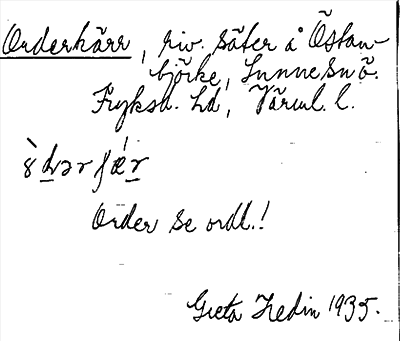 Orderkärr, riv. säter å Östan-
björke, Lunne sn ö.
Fryksd. hd, Värml. l.
Order se ordl.!
Greta Hedin 1935.